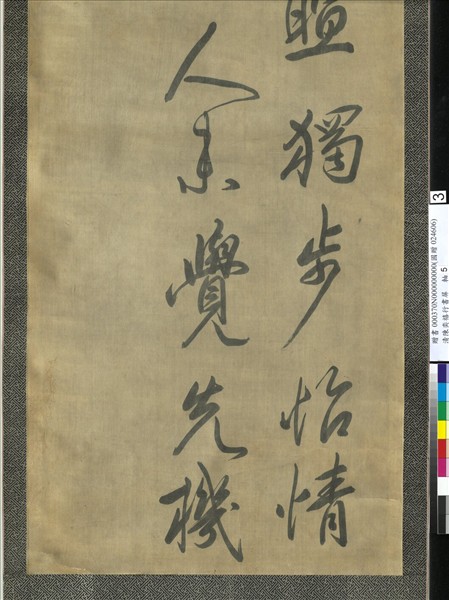 獨步怡情
人未覺先機
3
贈書 000370N000000000(國贈 024606)
清陳奕禧行書屏 軸 5